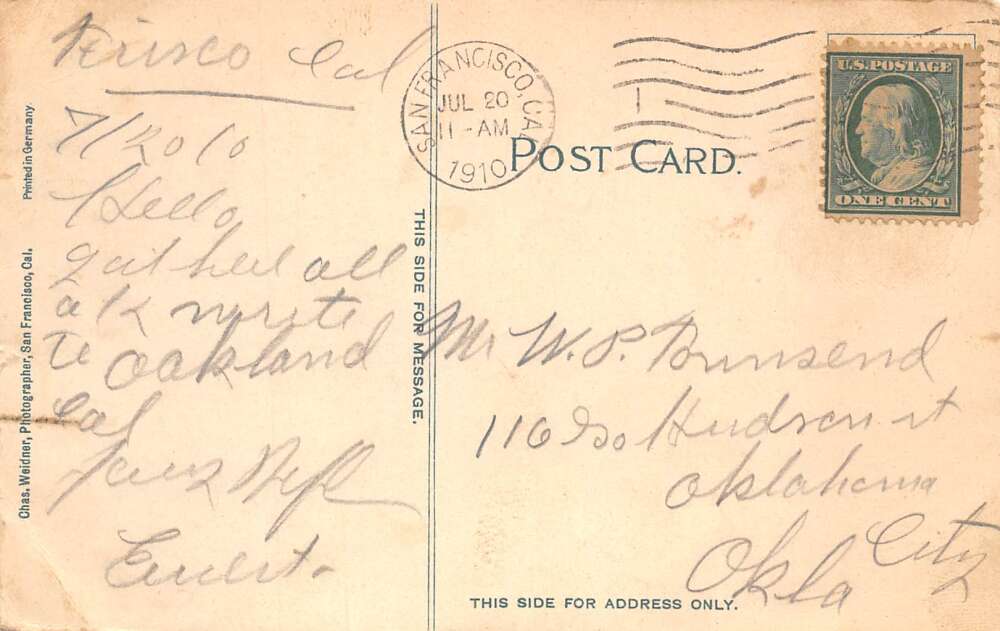 Frisco Cal
7/20 10
Hello
got here all
o k write
to Oakland
Cal
Yours
Ernest.
Printed in Germany
Chas. Weidner, Photographer, San Francisco, Cal.
THIS SIDE FOR MESSAGE.
SAN FRANCISCO, CAL
JUL 20
11-AM
1910
POST CARD.
U.S. POSTAGE
ONE CENT
Mr W. P. Townsend
116 So Hudson st
Oklahoma
City
Okla
THIS SIDE FOR ADDRESS ONLY.